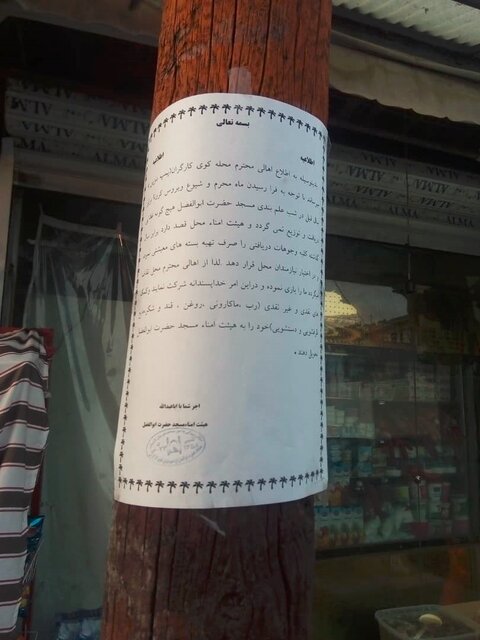 بسمه تعالی
اطلاعیه
بدینوسیله به اطلاع اهالی محترم محله کوی کارگران(پمپ
میرساند با توجه به فرا رسیدن ماه محرم و شیوع ویروس کرونا
سال قبل در شب علم بندی مسجد حضرت ابوالفضل هیچ گونه
دریافت و توزیع نمی گردد و هیئت امناء محل قصد دارد
گذشته کلیه وجوهات دریافتی را صرف تهیه بسته های معیشتی نموده
در اختیار نیازمندان محل قرار دهد .لذا از اهالی محترم محل
ما را یاری نموده و دراین امر خداپسندانه شرکت نمایند و
های نقدی و غیر نقدی (رب ،ماکارونی ،روغن ، قند و شکر
و دستشویی)خود را به هیئت امناء مسجد حضرت ابوالفضل
تحویل دهند .
اجر شما با اباعبدالله
هیئت امناءمسجد حضرت ابوالفضل
ALMA
ALMA
ALMA
ALMA